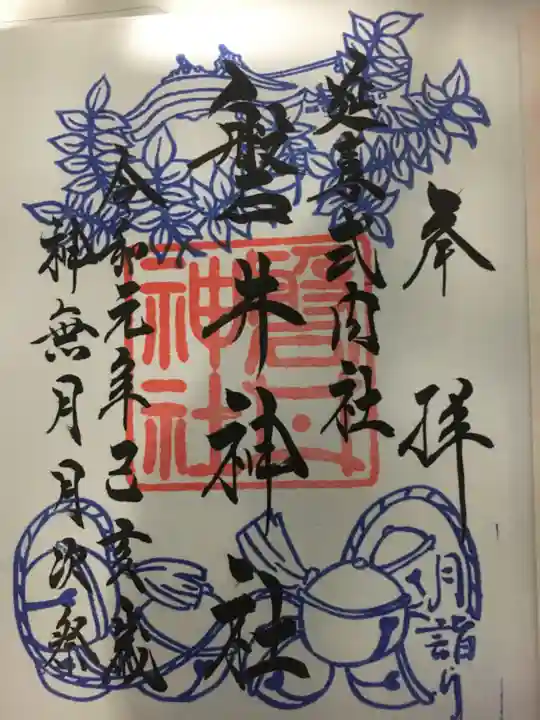 奉拝
延喜式内社
磐井神社
令和元年己亥歳
神無月月次祭
月詣り
磐井神社